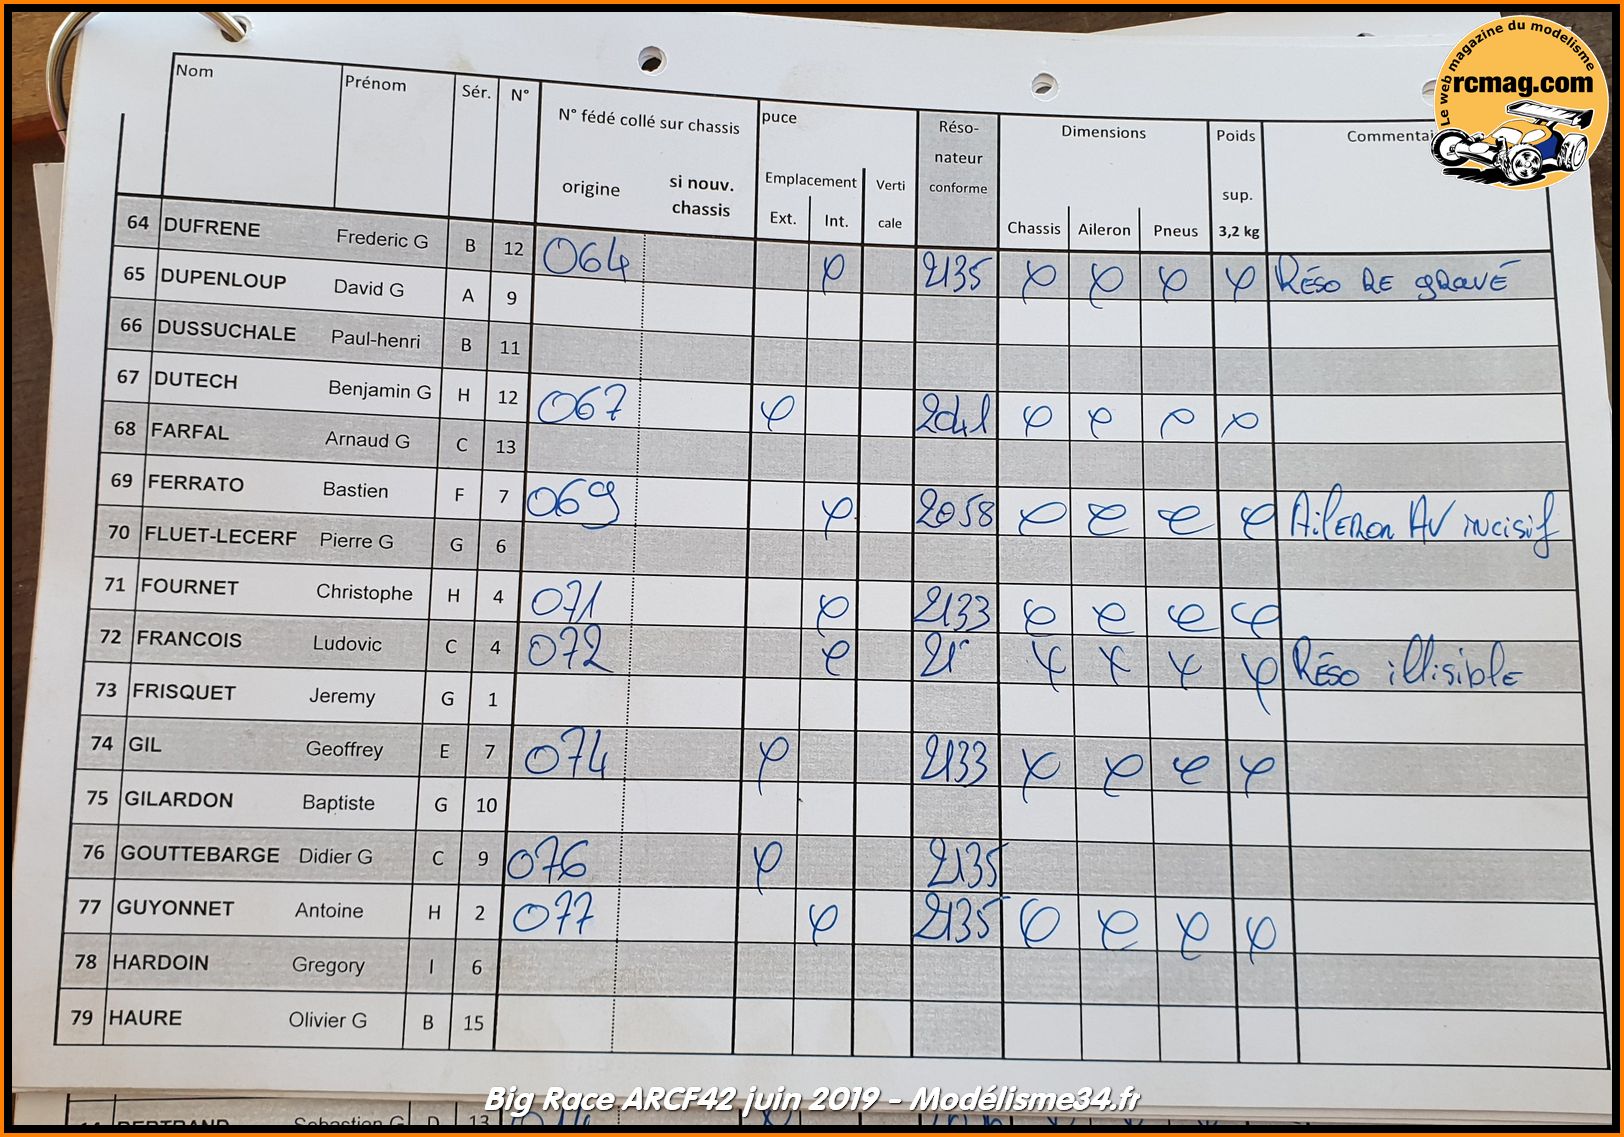 Le web magazine du modelisme
rcmag.com
Nom Prénom Sér. N° N° fédé collé sur chassis puce Réso- Dimensions Poids Commentai
nateur
origine si nouv. Emplacement Verti conforme sup.
chassis Ext. Int. cale Chassis Aileron Pneus 3,2 kg
64 DUFRENE Frederic G B 12 064 φ 2135 φ φ φ φ RÉSO RE gRAVÉ
65 DUPENLOUP David G A 9
66 DUSSUCHALE Paul-henri B 11
67 DUTECH Benjamin G H 12 067 φ 2041 φ φ φ φ
68 FARFAL Arnaud G C 13
69 FERRATO Bastien F 7 069 φ 2058 φ φ φ φ AilERON AV incisif
70 FLUET-LECERF Pierre G G 6
71 FOURNET Christophe H 4 071 φ 2133 φ φ φ φ
72 FRANCOIS Ludovic C 4 072 φ 21 φ φ φ φ RÉSO illisible
73 FRISQUET Jeremy G 1
74 GIL Geoffrey E 7 074 φ 2133 φ φ φ φ
75 GILARDON Baptiste G 10
76 GOUTTEBARGE Didier G C 9 076 φ 2135
77 GUYONNET Antoine H 2 077 φ 2135 φ φ φ φ
78 HARDOIN Gregory I 6
79 HAURE Olivier G B 15
Big Race ARCF42 juin 2019 - Modélisme34.fr
BERTRAND Sebastien G D 13 014